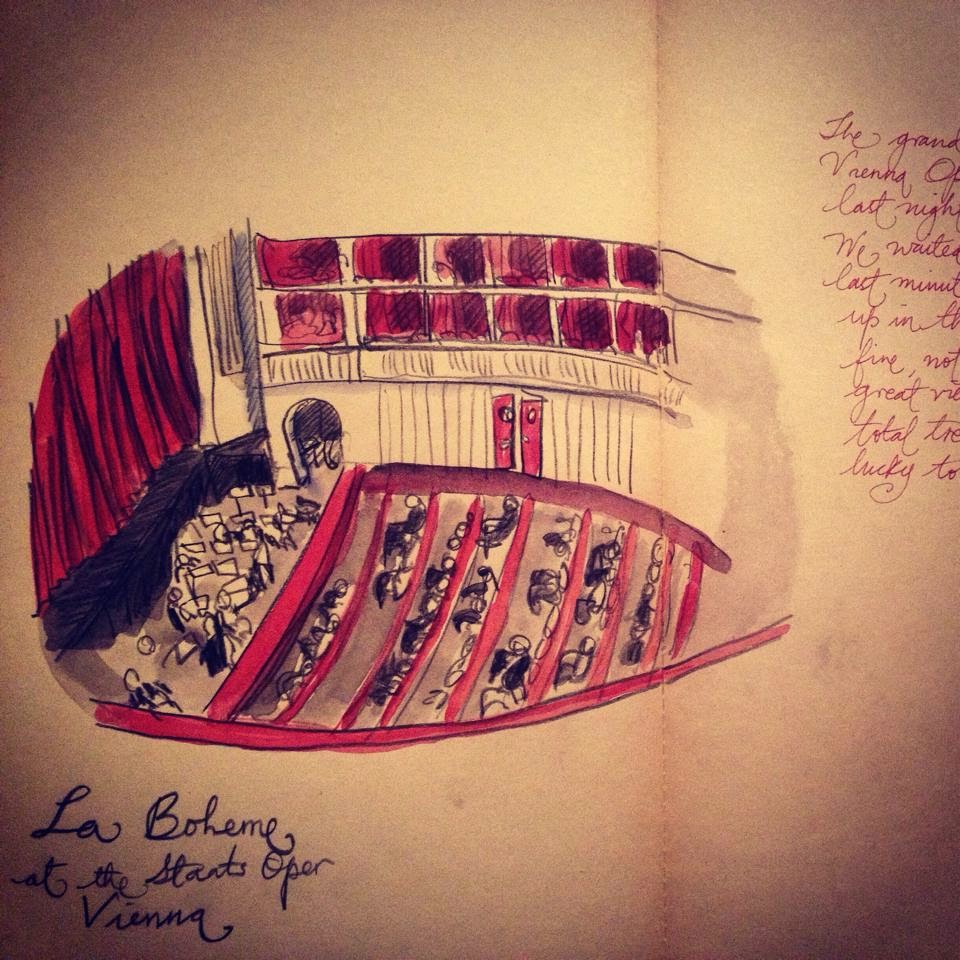 La Boheme
at the Staats Oper
Vienna
The grand
Vienna Op
last night
We waited
last minut
up in th
fine, not
great vie
total tre
lucky to